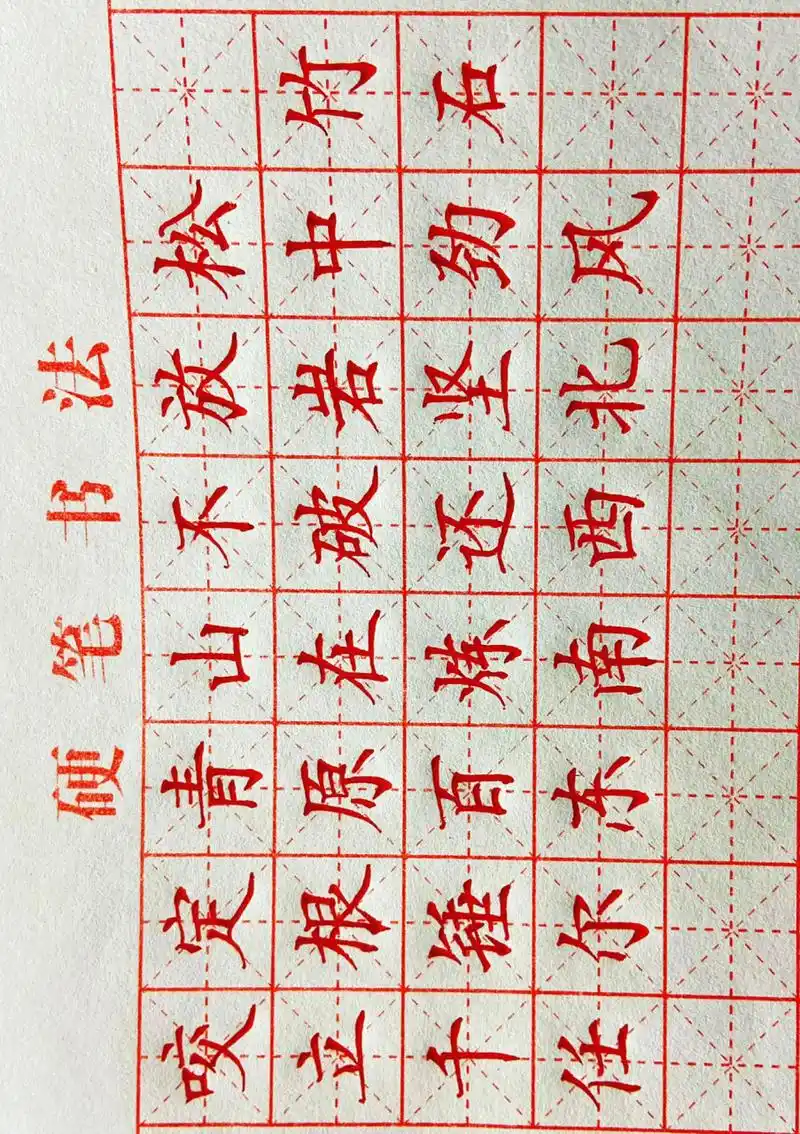 硬笔书法
竹石
咬定青山不放松
立根原在破岩中
千锤百炼还坚劲
任尔东南西北风